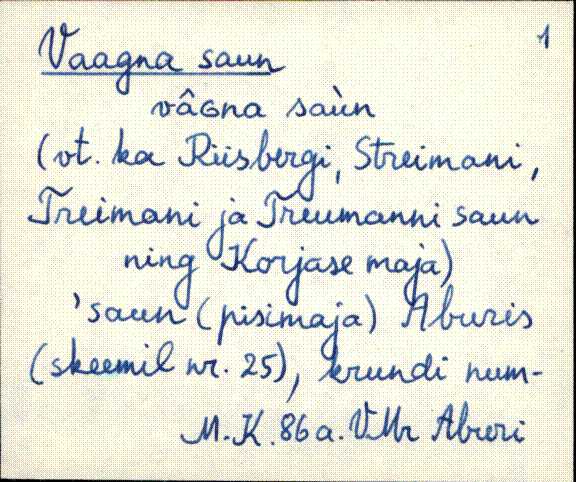 1
Vaagna saun
vâɢna saùn
(vt. ka Riisbergi, Streimani,
Treimani ja Treumanni saun
ning Korjase maja)
'saun (pisimaja) Aburis
(skeemil nr. 25), krundi num-
M.K. 86 a. VMr Aburi